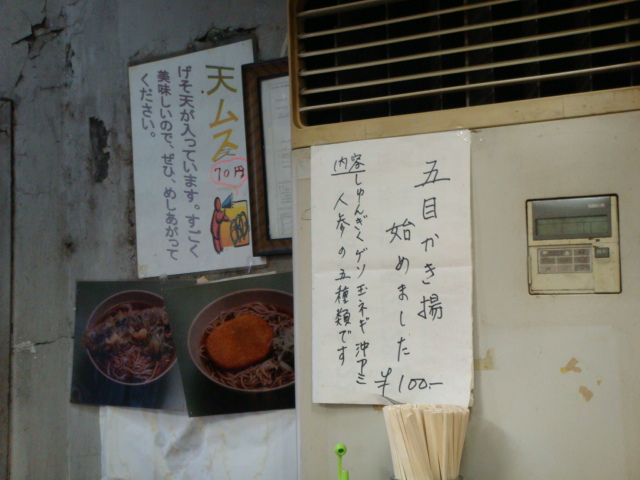 天ムス
70円
げそ天が入っています。すごく
美味しいので、ぜひ、めしあがって
ください。
五目かき揚
始めました
¥100-
内容しゅんぎくゲソ玉ネギ沖アミ
人参の五種類です